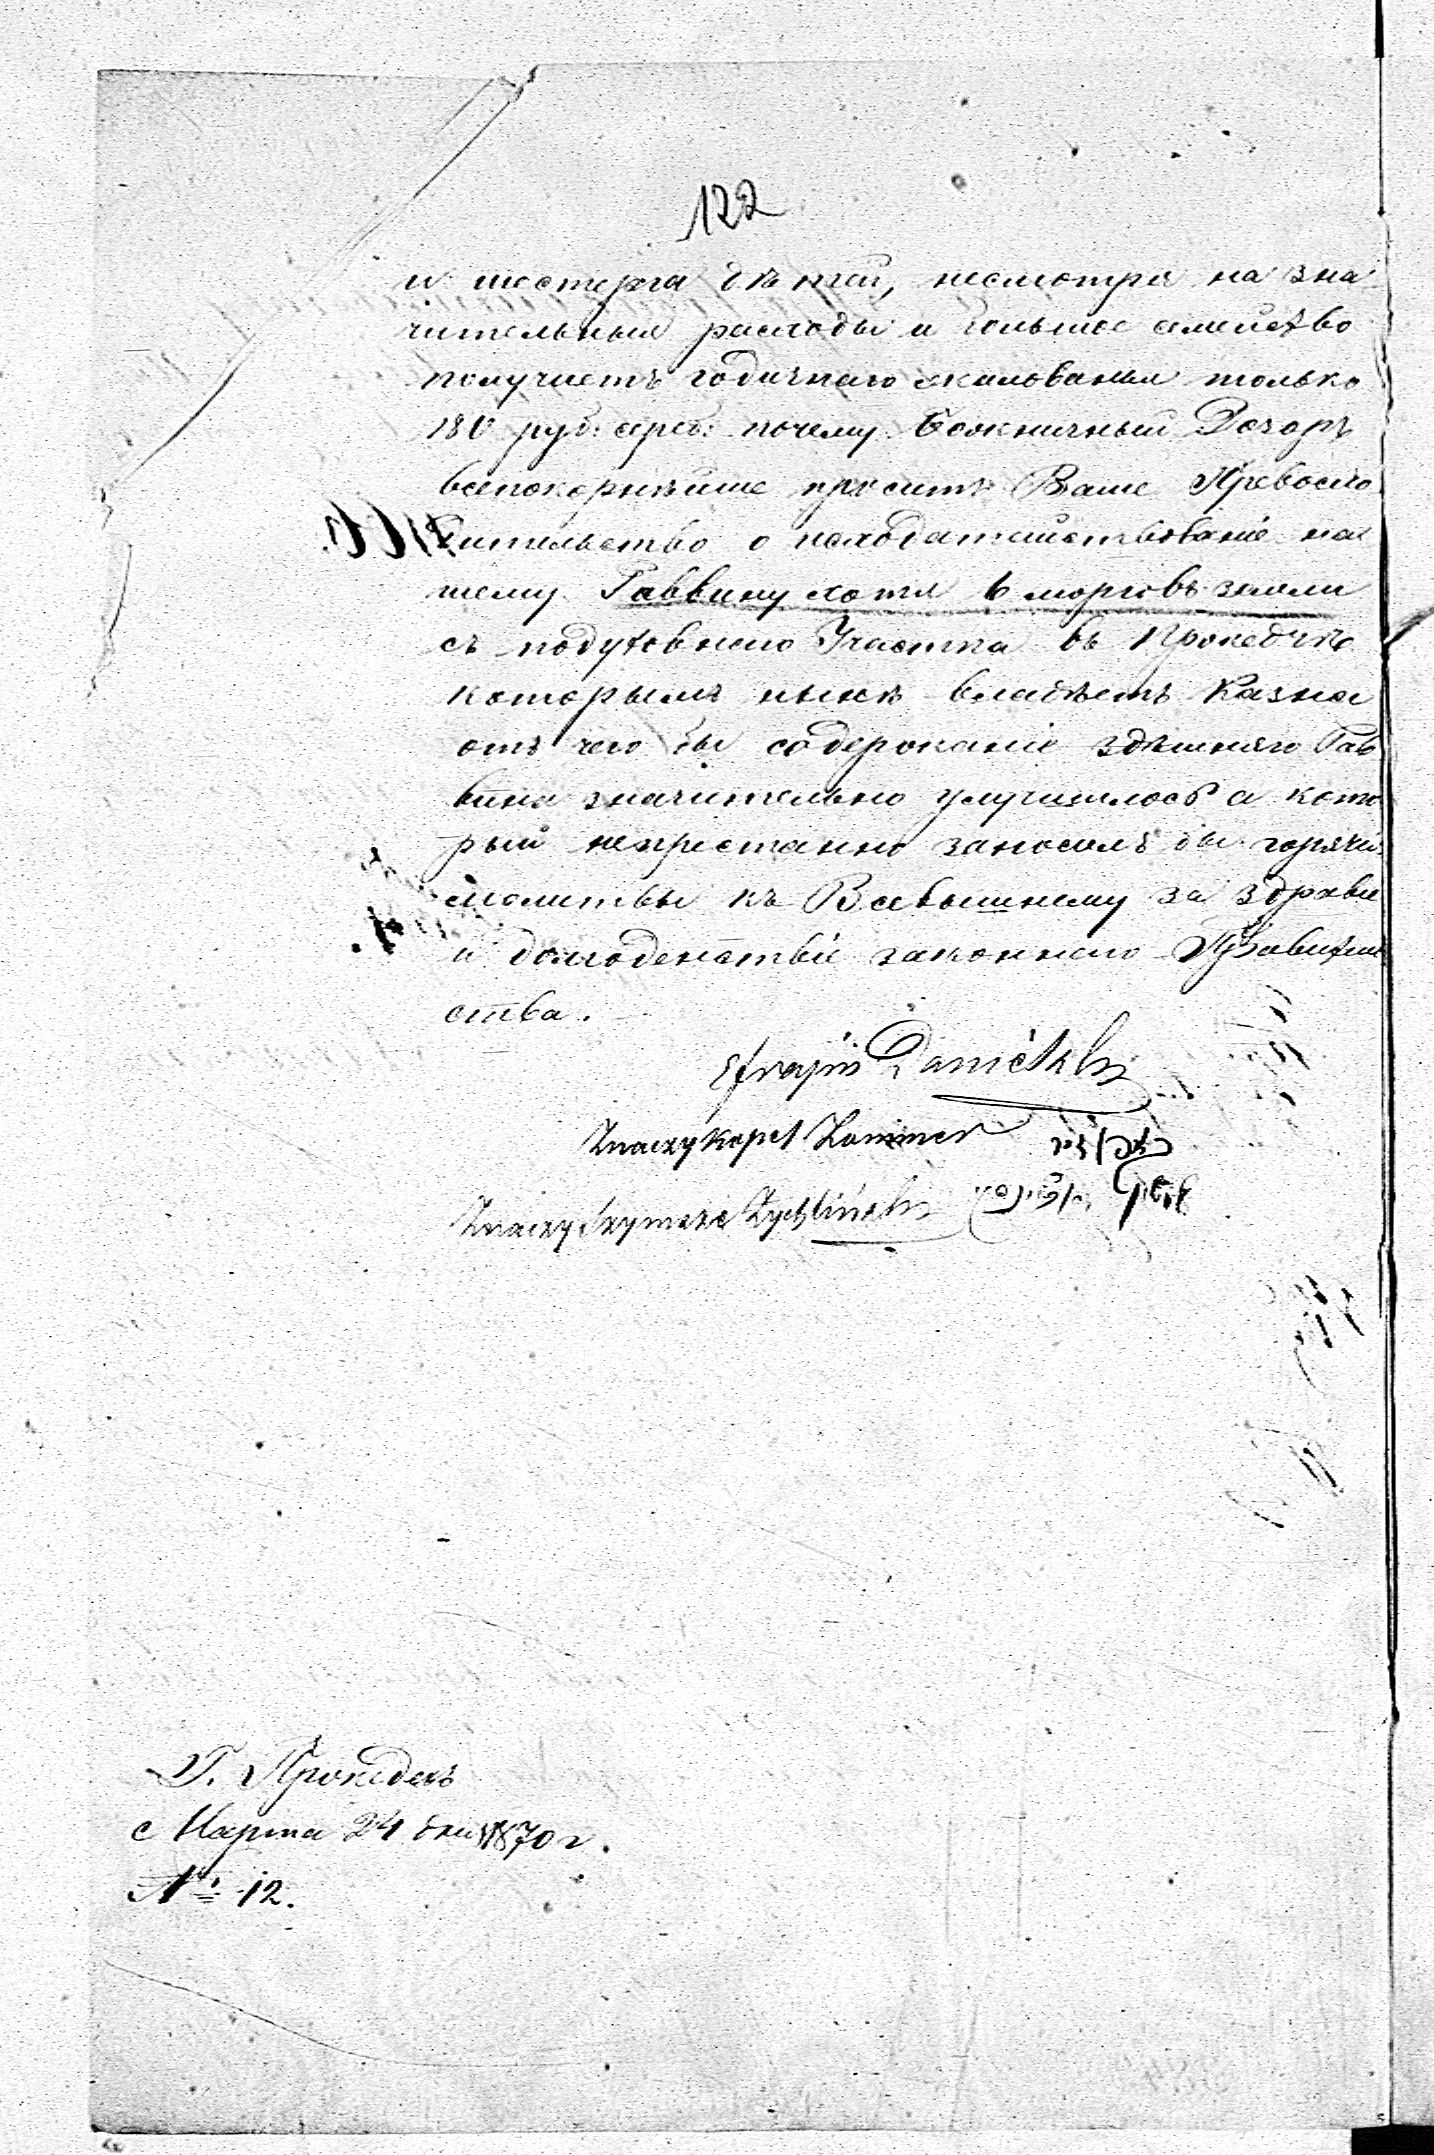 122
и шестера дѣтей, несмотря на зна
чительныя расходы и большое семейство
получаетъ годичнаго жалованья только
180 руб: сереб: почему Божничный Дозоръ
всепокорнѣйше проситъ Ваше Превосхо
дительство о походатайствованіе на
шему Раввину хотя 6 морговъ земли
съ подуховнаго Участка въ
которымъ нынѣ владѣетъ Казна
отъ чего бы содержаніе здѣшняго Рав
вина значительно улучшилось а кото
рый непрестанно заносилъ бы горячія
молитвы къ Всевышнему за здравіе
и долгоденствіе законнаго Правитель
ства.
Efraim
Znaczy Kopel Zommer
Znaczy Szymsze Zychliński
Г.
с Марта 24 дня 1870 г.
№ 12.